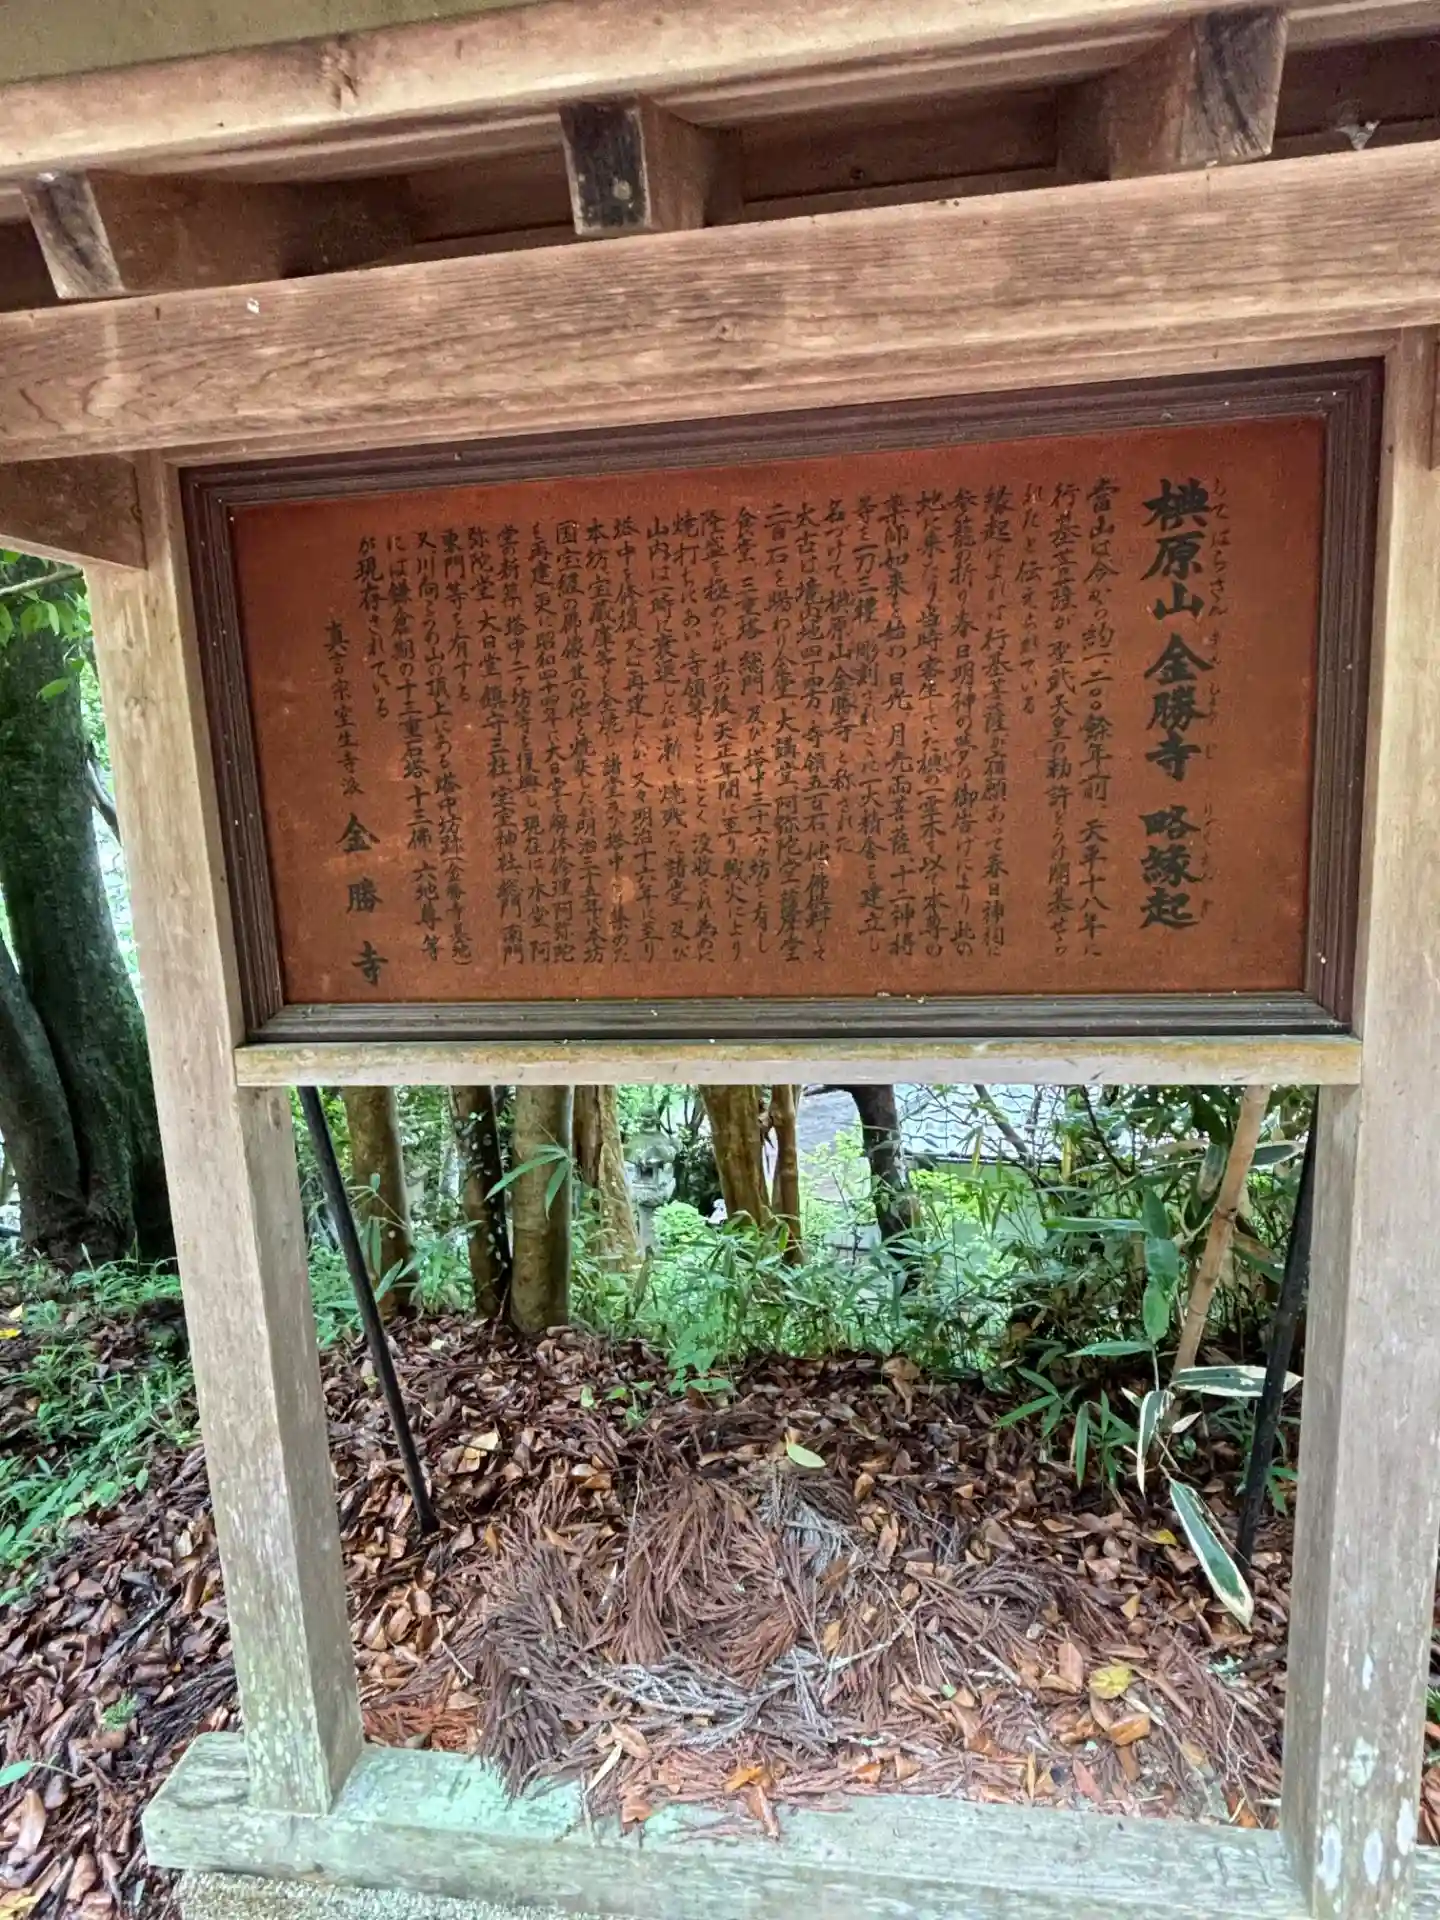 椣原山 金勝寺 略縁起
してはらさん きんしょうじ りゃくえんぎ
當山は今から約一、二〇〇餘年前 天平十八年に
行基菩薩が 聖武天皇の勅許をうけ開基せら
れたと伝えられている
縁起によれば 行基菩薩が宿願あって春日神祠に
参籠の折り 春日明神の夢の御告けにより 此の
地に来たり 当時寄生していた椣の一霊木を以て本尊の
薬師如来を始め、日光、月光両菩薩、十二神将
等を一刀三禮 彫刻され こゝに一大精舎を建立し
名づけて、椣原山金勝寺と称された
太古は境内地四丁四方、寺領五百石、他に佛供料として
二百石を賜わり金堂、大講堂、阿弥陀堂、護摩堂
食堂、三重塔、総門、及び塔中三十六ヶ坊を有し
隆盛を極めたが其の後、天正年間に至り戦火により
焼打ちにあい寺領等もことごとく没收され為めに
山内は一時に衰運したが漸く焼残った諸堂、及び
塔中を修復又は再建したが 又々明治十六年に至り
本坊、宝蔵庫等を全焼し諸堂及び塔中より集めた
国宝級の佛像其の他を焼失した お明治三十五年に本坊
を再建 更に昭和四十四年に大日堂を解体修理 阿弥陀
堂の新築、塔中二ヶ坊等を復興し現在は本堂 阿
弥陀堂、大日堂、鎮守三社、室宮神社、総門、南門
東門等を有する
又川向こうの山の頂上にある塔中坊跡(金勝寺墓地)
には鎌倉期の十三重石塔、十三佛、六地尊等
が現存されている
真言宗室生寺派 金勝寺